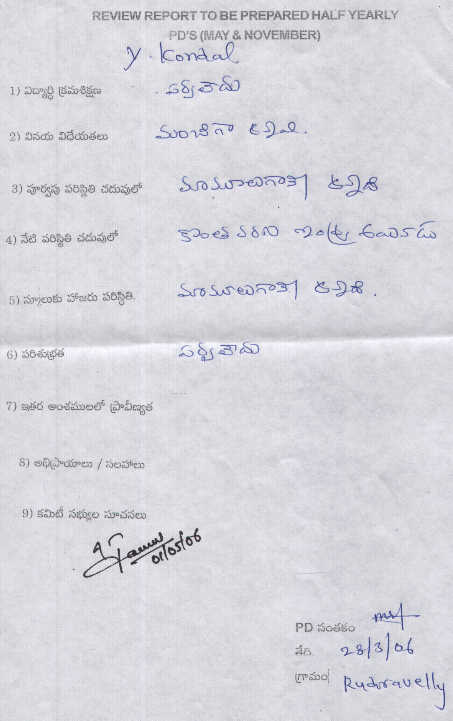 REVIEW REPORT TO BE PREPARED HALF YEARLY
PD'S (MAY & NOVEMBER)
Y. Kondal
1) విద్యార్థి క్రమశిక్షణ పర్వాలేదు
2) వినయ విధేయతలు మంచిగా ఉన్నవి.
3) పూర్వపు పరిస్థితి చదువులో మామూలుగానే ఉన్నది
4) నేటి పరిస్థితి చదువులో కొంత వరకు
5) స్కూలుకు హాజరు పరిస్థితి. మామూలుగానే ఉన్నది.
6) పరిశుభ్రత పర్వాలేదు
7) ఇతర అంశములలో ప్రావీణ్యత
8) అభిప్రాయాలు / సలహాలు
9) కమిటీ సభ్యుల సూచనలు
01/05/06
PD సంతకం
తేది. 28/3/06
గ్రామం Rudravelly